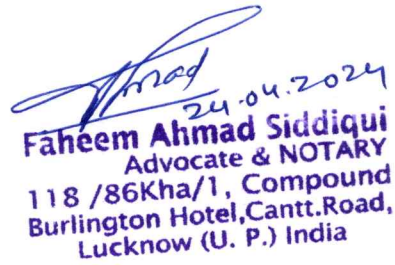 Ahmad
24.04.2024
Faheem Ahmad Siddiqui
Advocate & NOTARY
118 /86Kha/1, Compound
Burlington Hotel,Cantt.Road,
Lucknow (U. P.) India